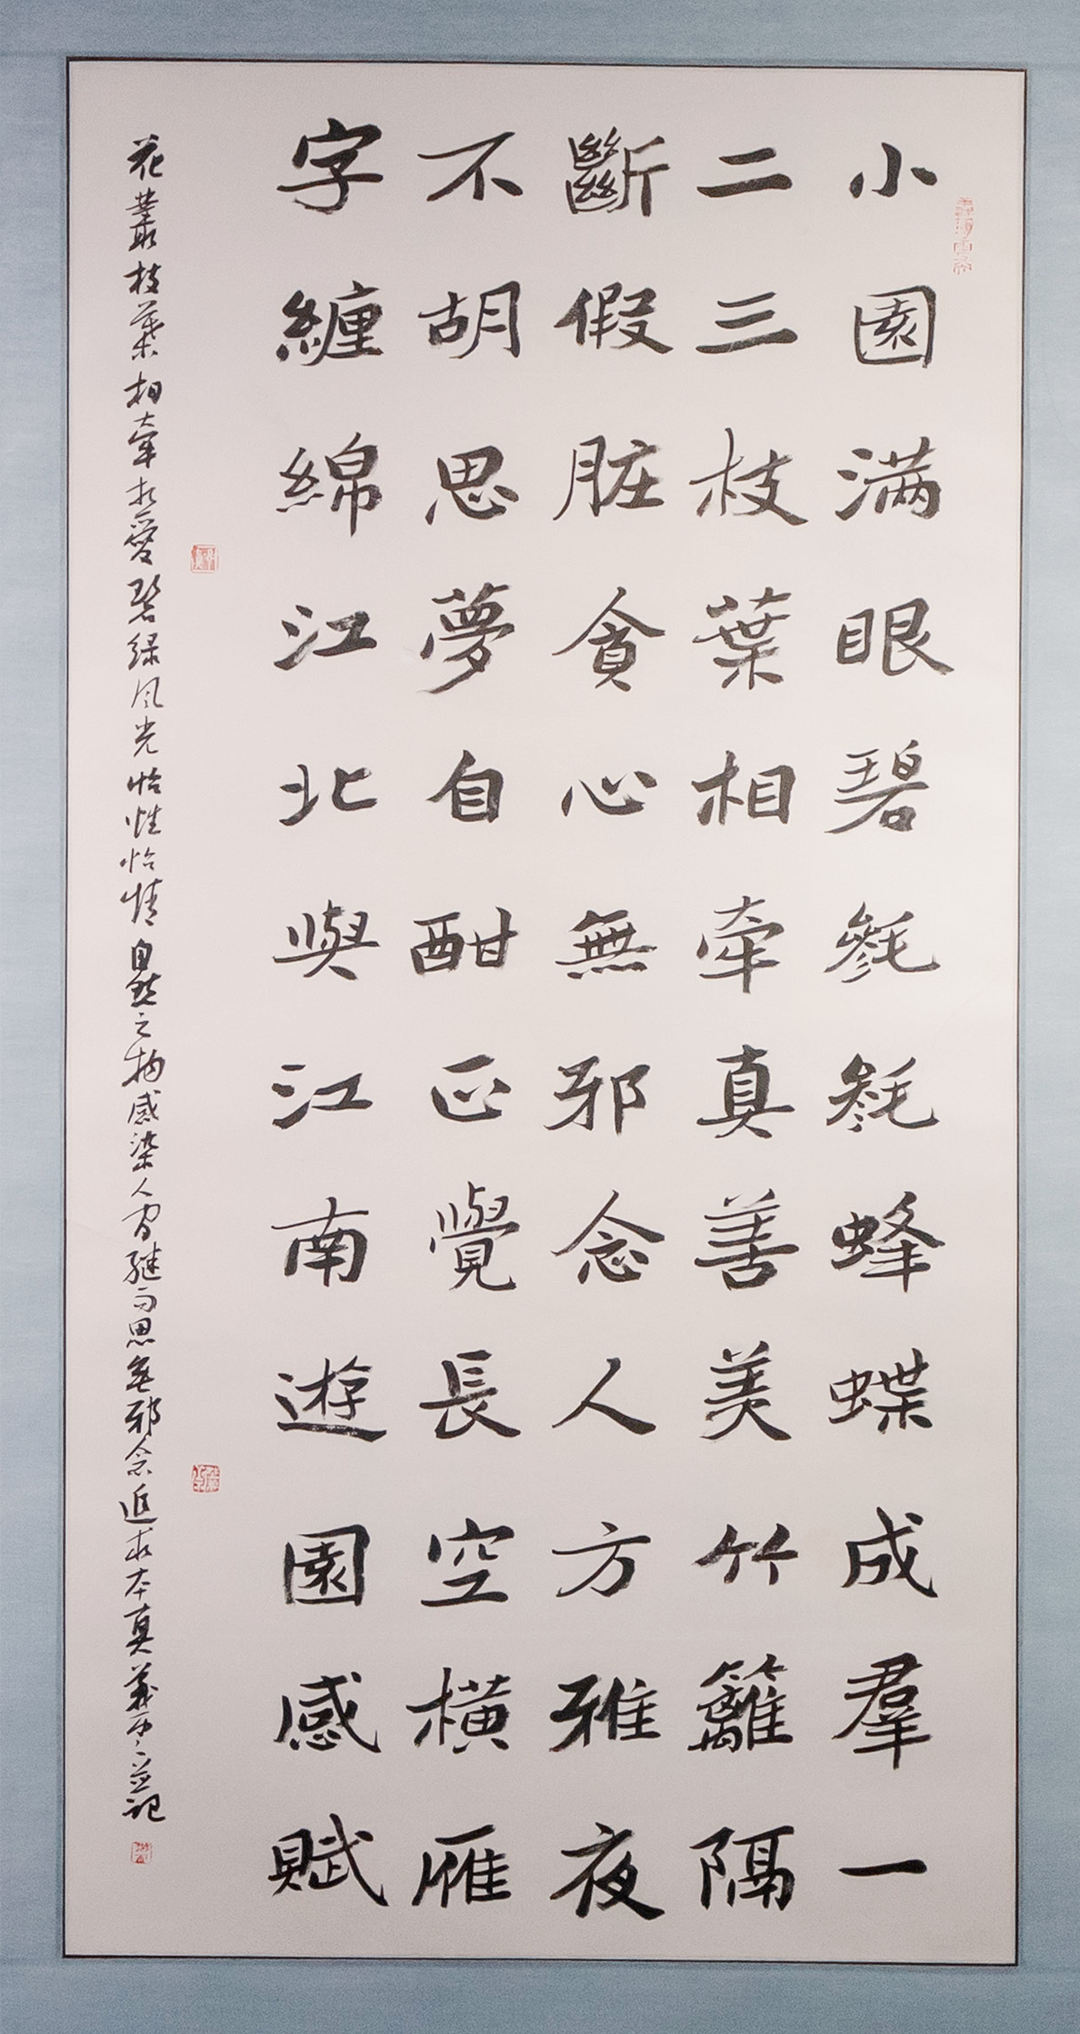 小園满眼碧毿毿蜂蝶成羣一
二三枝葉相牽真善美竹籬隔
斷假脏貪心無邪念人方雅夜
不胡思夢自酣正覺長空橫雁
字纏綿江北與江南遊園感賦
花叢枝葉相牽相愛碧綠风光怡性怡情自然之物感染人
思無邪念追求本真
并記